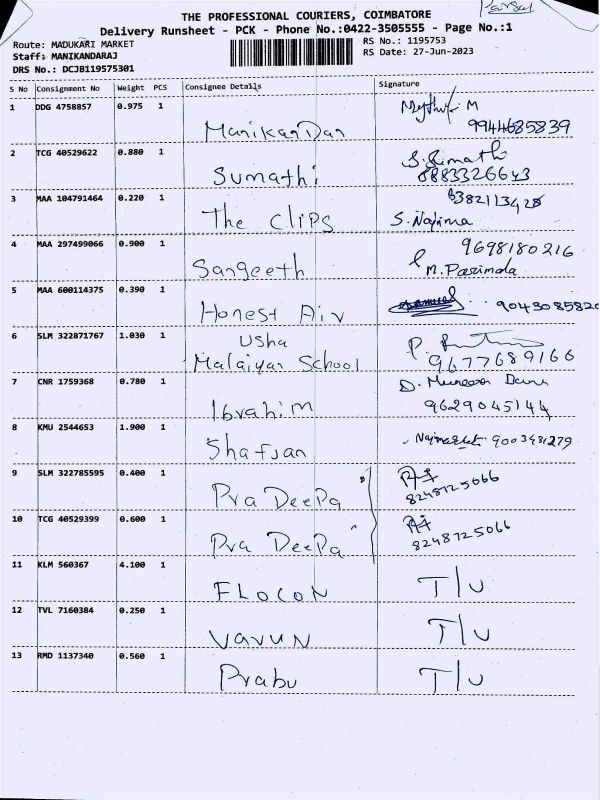 Parsul
THE PROFESSIONAL COURIERS, COIMBATORE
Delivery Runsheet - PCK - Phone No.:0422-3505555 - Page No.:1
Route: MADUKARI MARKET RS No.: 1195753
Staff: MANIKANDARAJ RS Date: 27-Jun-2023
DRS No.: DCJB119575301
S No Consignment No Weight PCS Consignee Details Signature
1 DDG 4758857 0.975 1 M
Manikandan 9944685839
2 TCG 40529622 0.880 1 S. Sumathi
Sumathi 8883326643
3 MAA 104791464 0.220 1 6382113428
The CliPS S. Najima
4 MAA 297499066 0.900 1 9698180216
Sangeeth M. Parimala
5 MAA 600114375 0.390 1
Honest Air 9043085820
6 SLM 322871767 1.030 1 Usha P.
Malaiyar School 9677689166
7 CNR 1759368 0.780 1 D.
Ibrahim 9629045144
8 KMU 2544653 1.900 1
Shafjan 9003431279
9 SLM 322785595 0.400 1
Pra DeePa 8248725066
10 TCG 40529399 0.600 1
Pra DeePa 8248725066
11 KLM 560367 4.100 1
FLOCON T/U
12 TVL 7160384 0.250 1
Varun T/U
13 RMD 1137340 0.560 1
Prabu T/U